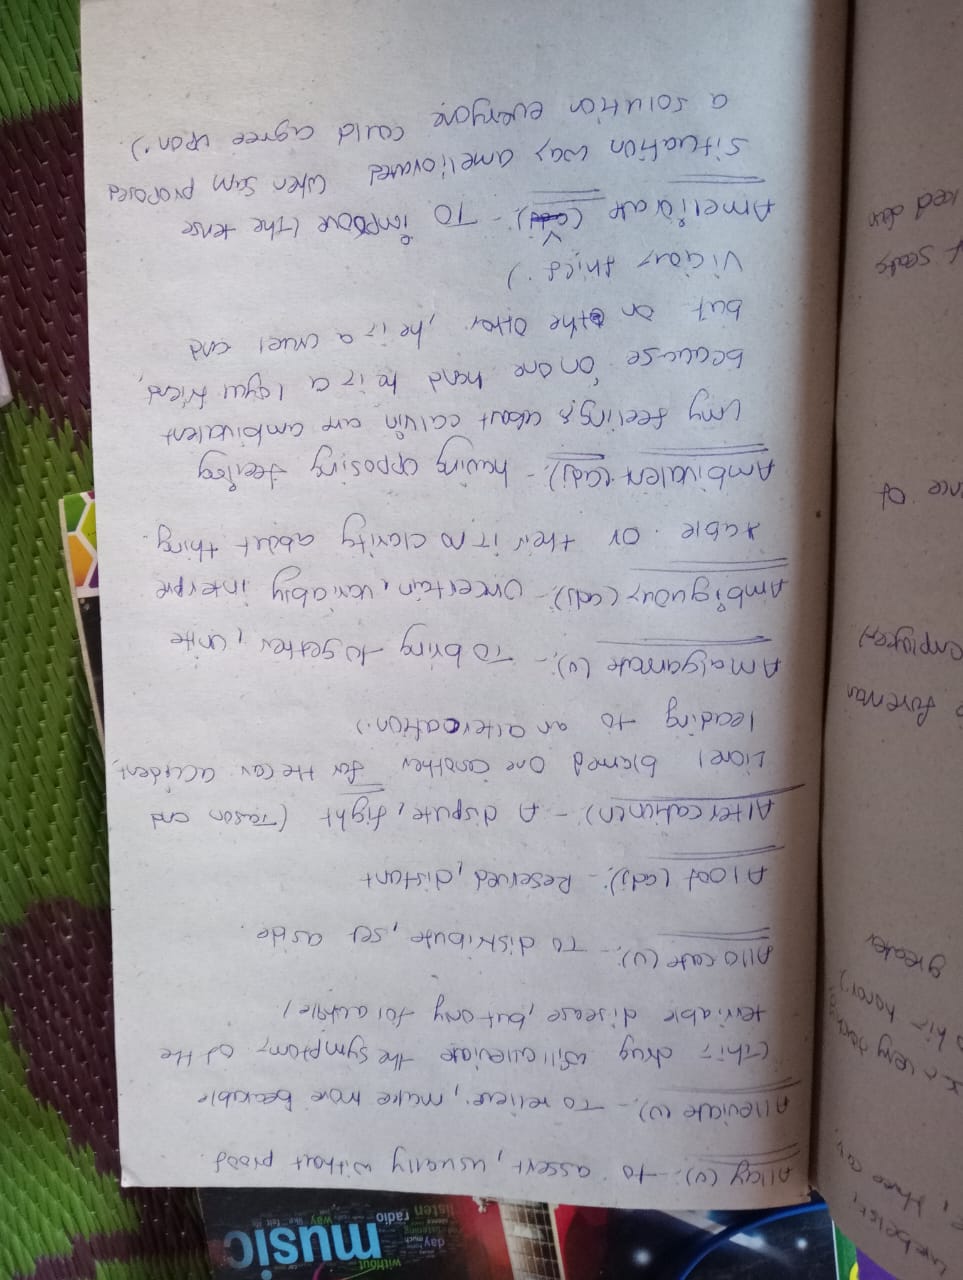 Allay (v):- to assert, usually without proof.
Alleviate (v):- To relieve, make more bearable
(This drug will alleviate the symptoms of the
terriable disease, but only for awhile)
Allocate (v):- To distribute, set aside.
Aloof (adj):- Reserved, distant
Altercation(n) - A dispute, fight (Jason and
Lionel blamed one another for the car accident,
leading to an altercation.)
Amalgamate (v):- To bring together, unite
Ambiguous (adj):- Uncertain, variably interpre
table. or their is no clarity about thing.
Ambivalent (adj):- having opposing feeling
(my feelings about calvin are ambivalent
because on one hand he is a loyal friend,
but on the other, he is a cruel and
vicious thief.)
Ameliorate (v):- To improve (the tense
situation was ameliorated when sam proposed
a solution everyone could agree upon.)
music
without
day
much
listen
radio
way
like
felt
employee)
foreman
greater
his honor)
very